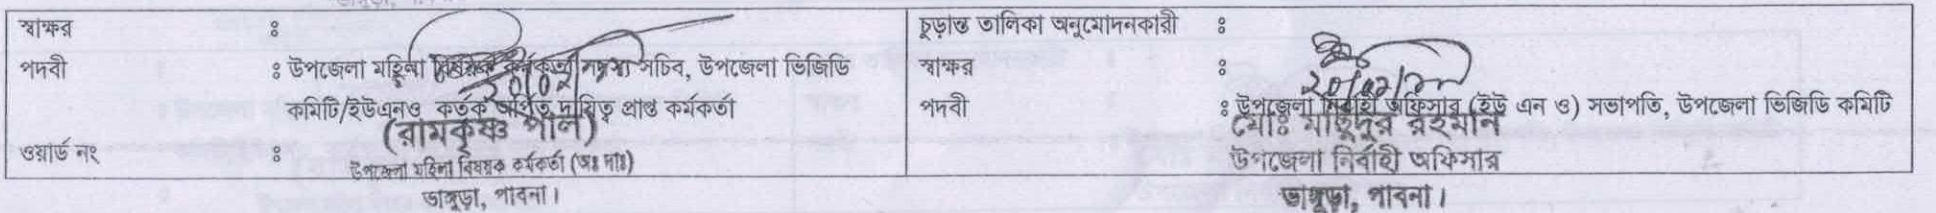 স্বাক্ষর ঃ
পদবী ঃ উপজেলা মহিলা বিষয়ক কর্মকর্তা সদস্য সচিব, উপজেলা ভিজিডি
কমিটি/ইউএনও কর্তৃক অর্পিত দায়িত্ব প্রাপ্ত কর্মকর্তা
(রামকৃষ্ণ পাল)
ওয়ার্ড নং ঃ
উপজেলা মহিলা বিষয়ক কর্মকর্তা (অঃ দাঃ)
ভাঙ্গুড়া, পাবনা।
চুড়ান্ত তালিকা অনুমোদনকারী ঃ
স্বাক্ষর ঃ
পদবী ঃ উপজেলা নির্বাহী অফিসার (ইউ এন ও) সভাপতি, উপজেলা ভিজিডি কমিটি
মোঃ মাহুদুর রহমান
উপজেলা নির্বাহী অফিসার
ভাঙ্গুড়া, পাবনা।